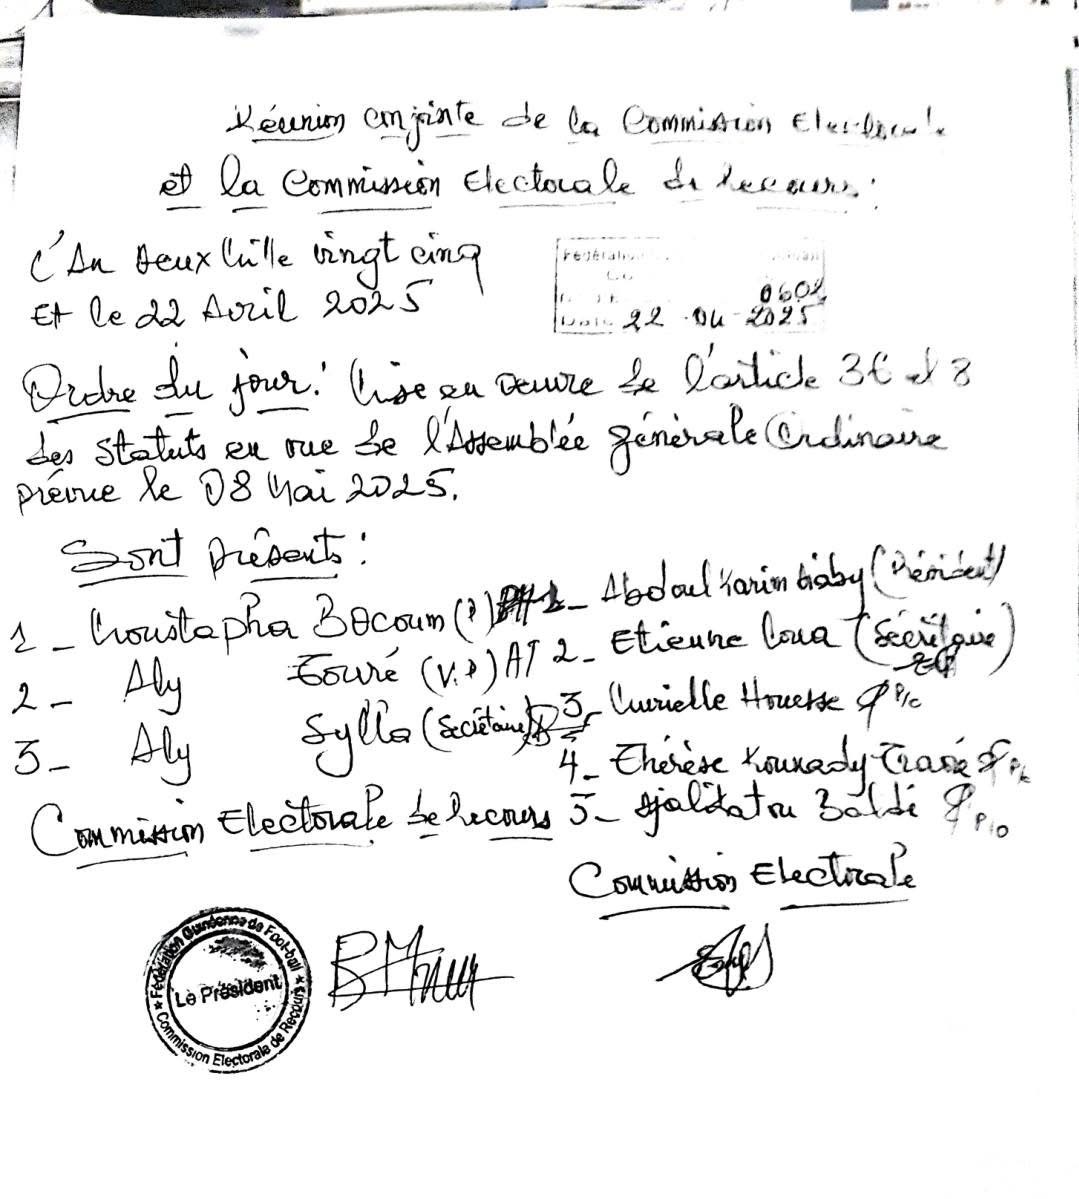 Réunion conjointe de la Commission Electorale
et la Commission Electorale de recours :
L'An Deux Mille vingt cinq
Et le 22 Avril 2025
Fédération
0602
Date 22-04-2025
Ordre du jour : Mise en Oeuvre de l'article 36 et 8
des Statuts en vue de l'Assemblée générale Ordinaire
prévue le 08 Mai 2025.
Sont présents :
1 - Moustapha Bocoum (P)
2 - Aly Touré (V.P) AT
3 - Aly Sylla (Secrétaire)
Commission Electorale de Recours
1 - Abdoul Karim Diaby (Président)
2 - Etienne Loua (Secrétaire)
3 - Murielle Houesse P/o
4 - Thérèse Kourady Traoré P/o
5 - Djalikatou Baldé P/o
Commission Electorale
Fédération Guinéenne de Foot-ball
Le Président
Commission Electorale de Recours